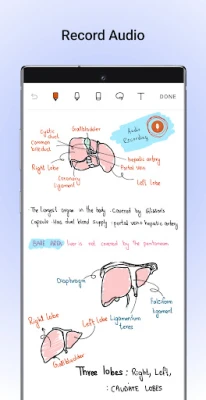 Record Audio
T DONE
Audio
Recording
Gallbladder
Cystic
duct
Common
bile duct
hepatic artery
Portal vein
Right Lobe
Coronary
ligament
Left Lobe
The largest organ in the body. Covered by Glisson's
Capsule Has dual blood supply : portal vein & hepatic artery
BARE AREA is not covered by the peritoneum
Diaphragm
Falciform
ligament
Right Lobe
Left Lobe
Ligamentum
Teres
Gallbladder
Three lobes : Right, Left,
: CAUDATE LOBES